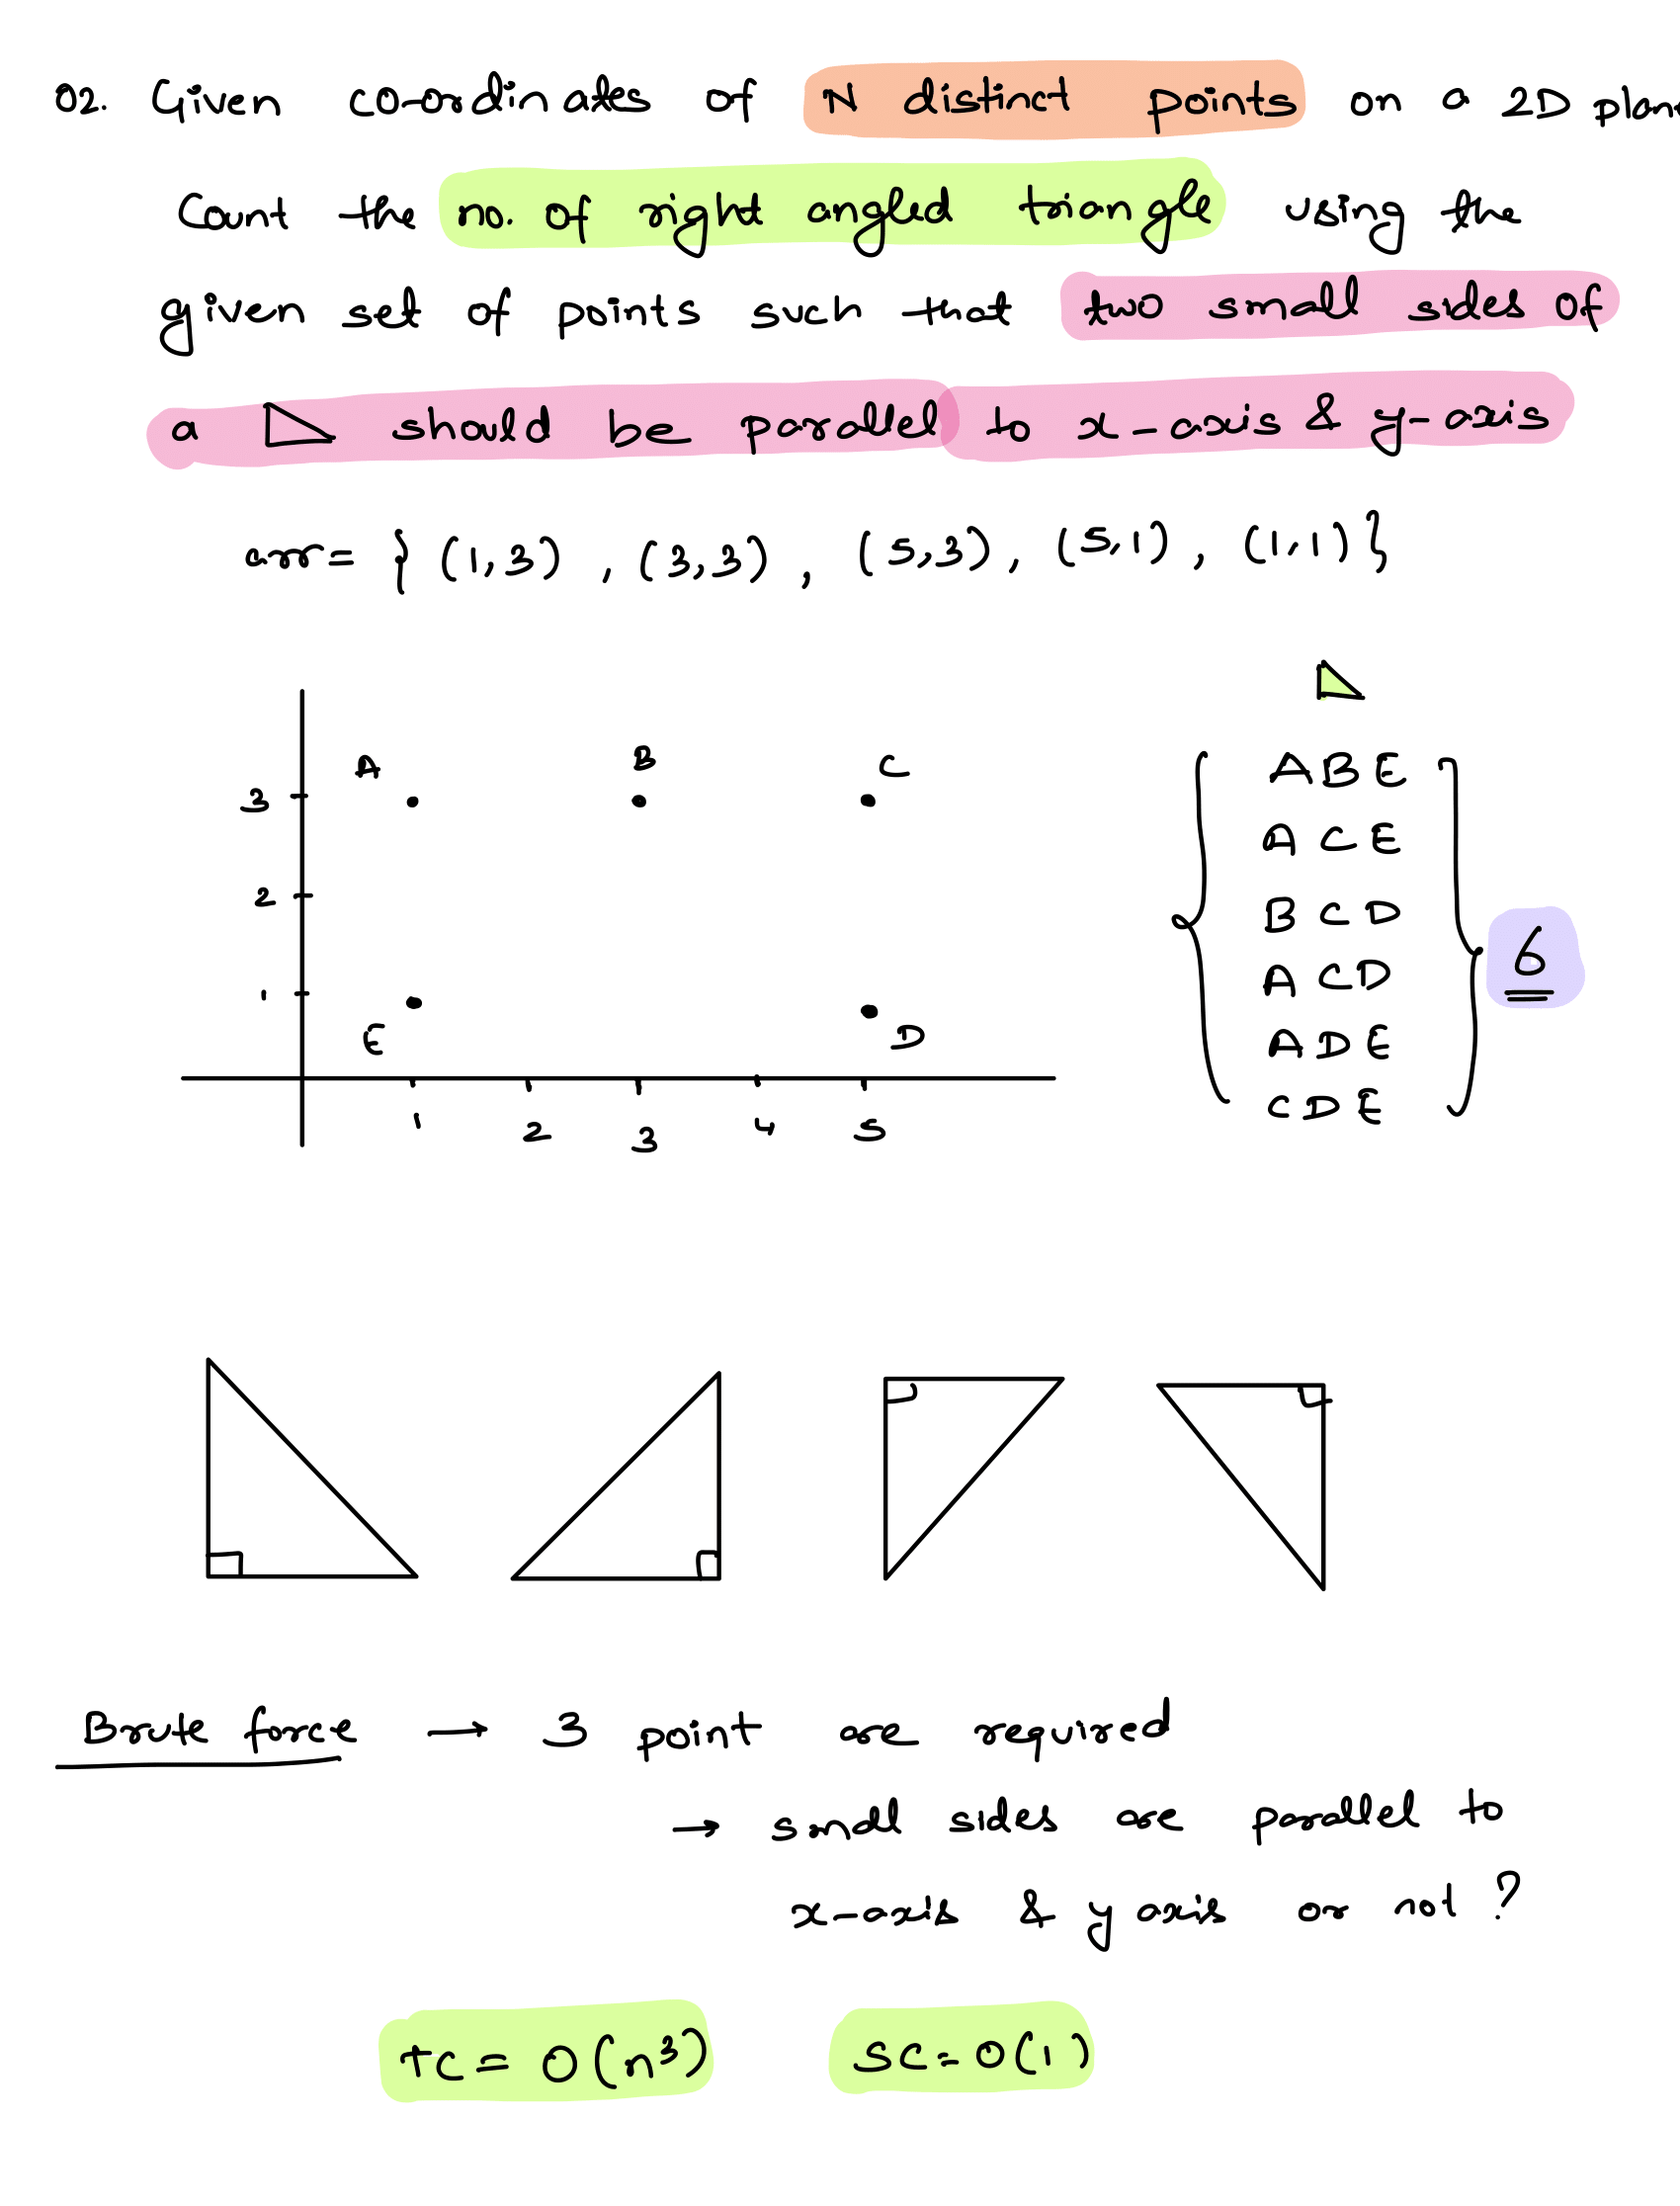 Q2. Given co-ordinates of N distinct points on a 2D plan
Count the no. of right angled triangle using the
given set of points such that two small sides of
a should be parallel to x-axis & y-axis
arr = { (1,3) , (3,3) , (5,3) , (5,1) , (1,1) }
A B C
3
2
1
E D
1 2 3 4 5
ABE
ACE
BCD
ACD
ADE
CDE
6
Brute force → 3 point are required
→ small sides are parallel to
x-axis & y axis or not ?
TC = O(n³) SC = O(1)